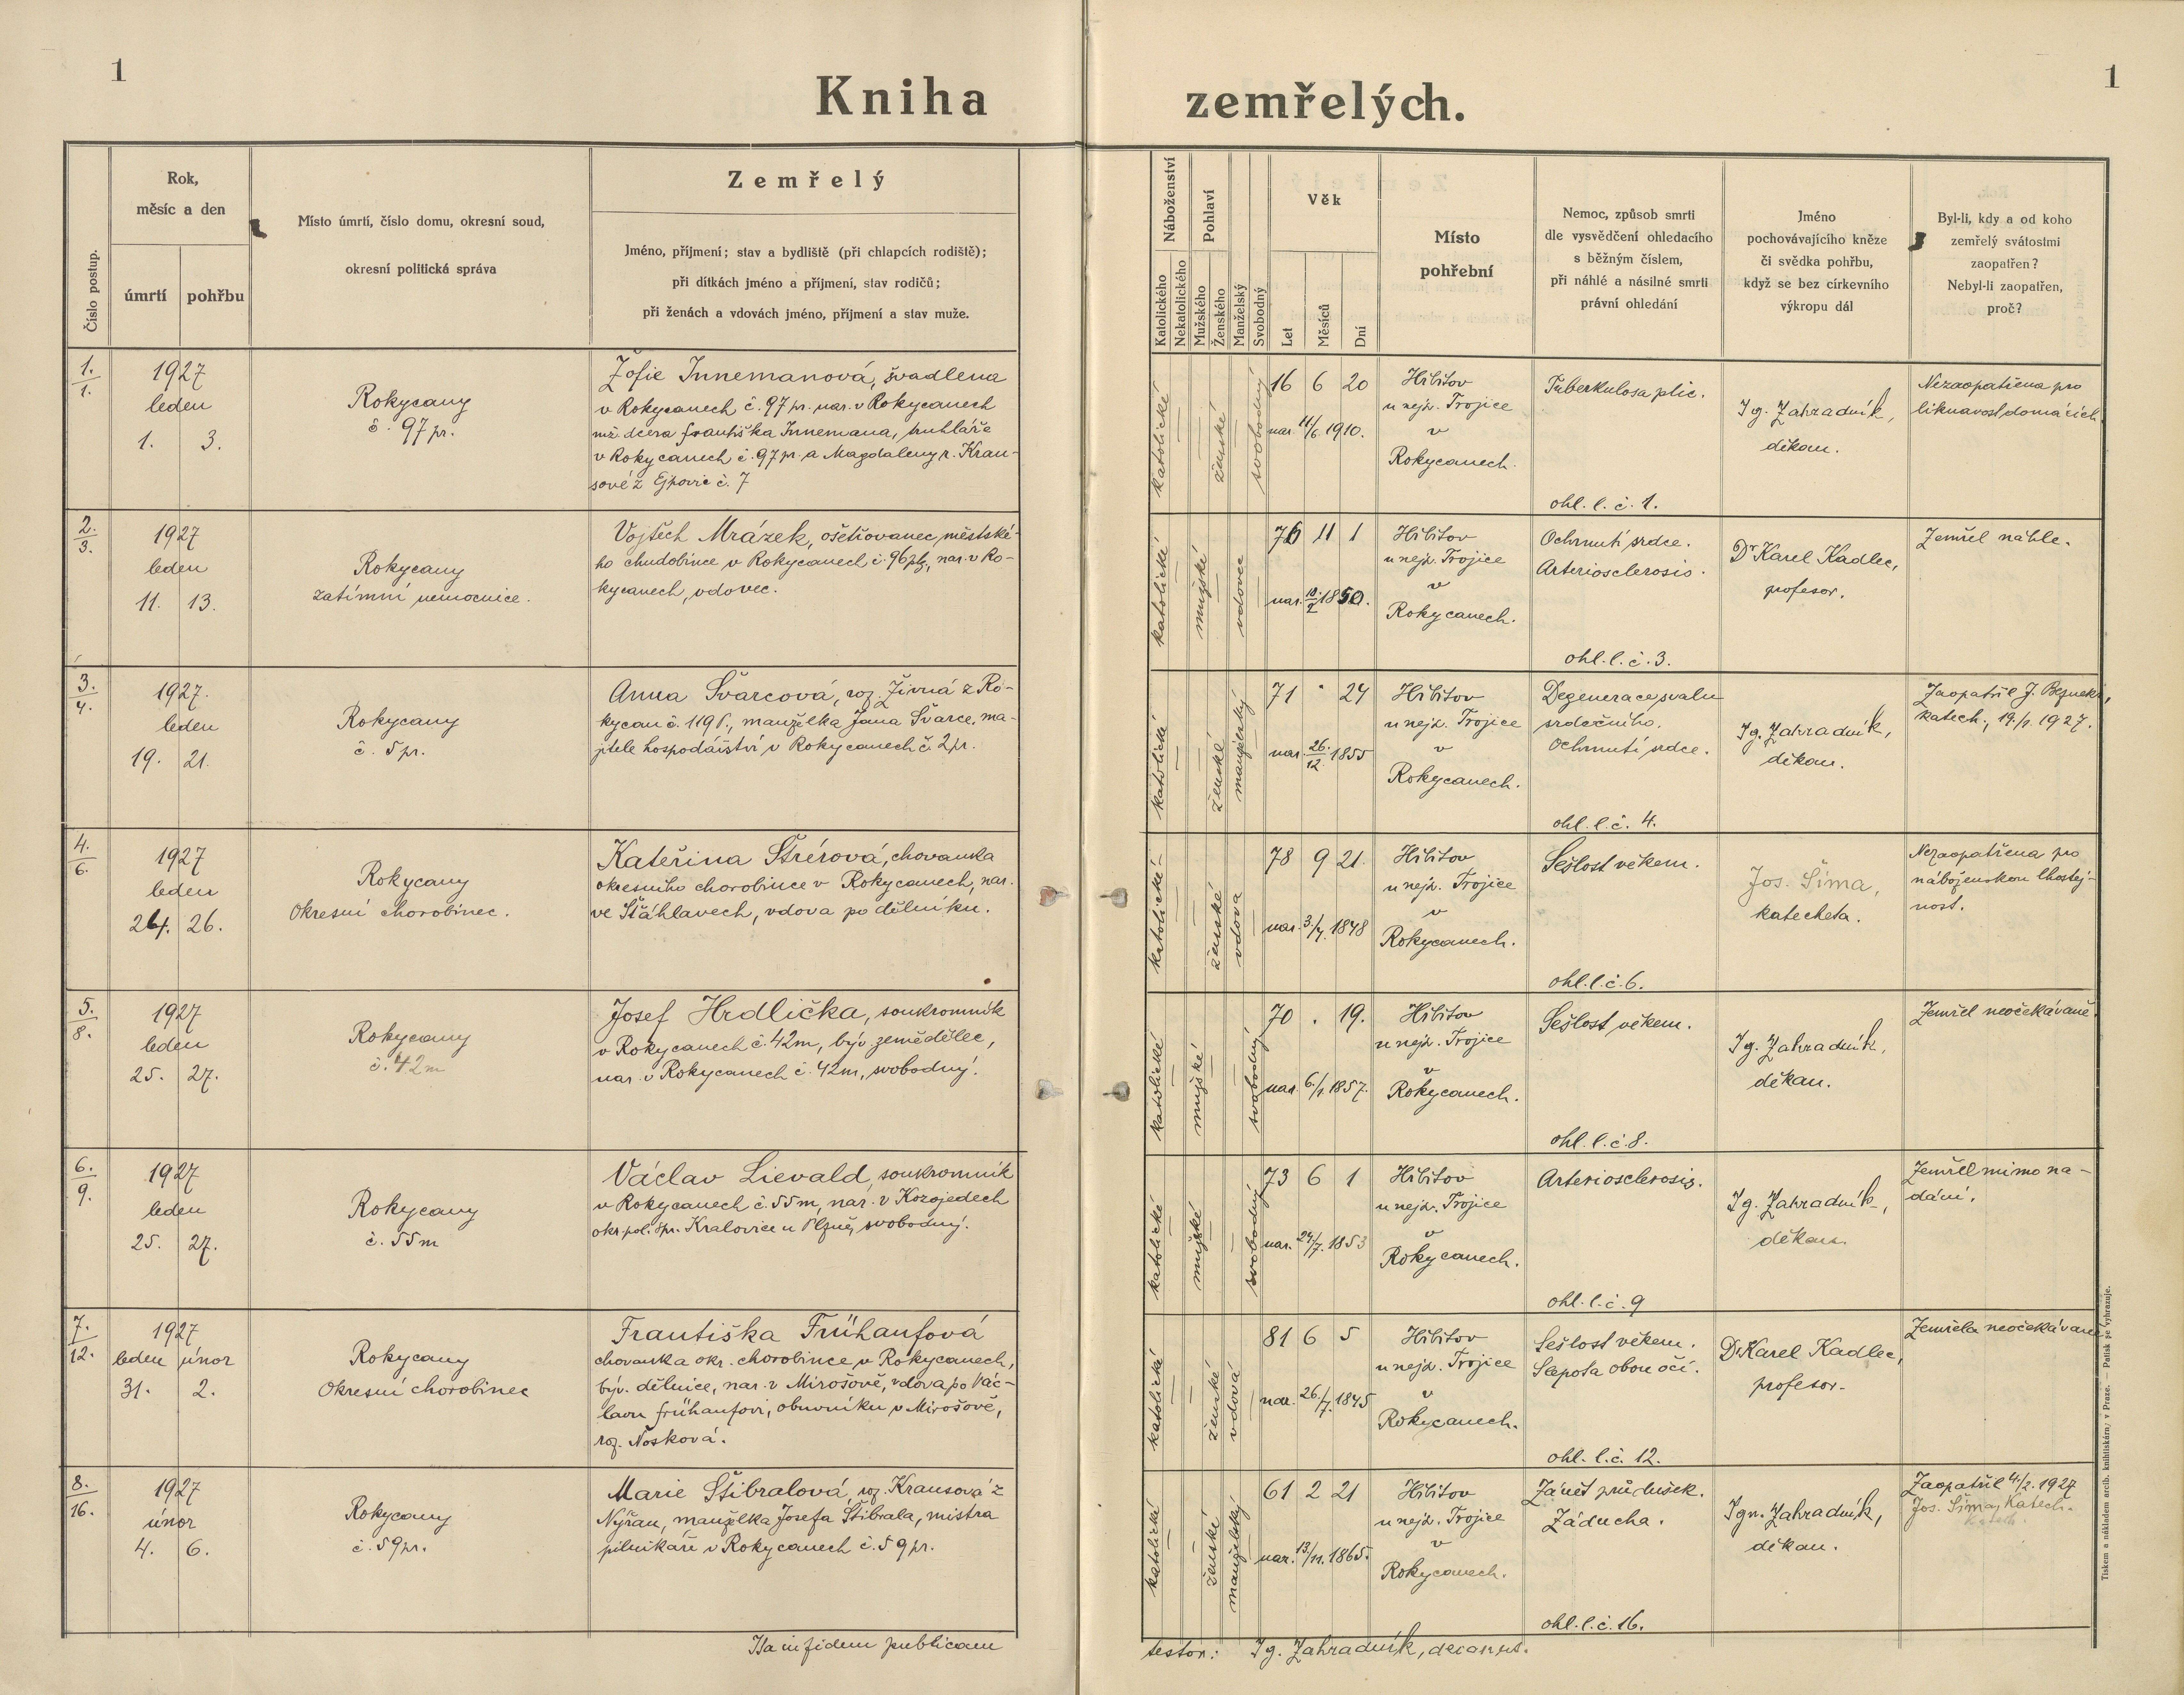 1
Kniha
zemřelých.
1
Číslo postup.
Rok,
měsíc a den
úmrtí
pohřbu
Místo úmrtí, číslo domu, okresní soud,
okresní politická správa
Zemřelý
Jméno, příjmení; stav a bydliště (při chlapcích rodiště);
při dítkách jméno a příjmení, stav rodičů;
při ženách a vdovách jméno, příjmení a stav muže.
Náboženství
Katolického
Nekatolického
Pohlaví
Mužského
Ženského
Manželský
Svobodný
Věk
Let
Měsíců
Dní
Místo
pohřební
Nemoc, způsob smrti
dle vysvědčení ohledacího
s běžným číslem,
při náhlé a násilné smrti
právní ohledání
Jméno
pochovávajícího kněze
či svědka pohřbu,
když se bez církevního
výkropu dál
Byl-li, kdy a od koho
zemřelý svátostmi
zaopatřen?
Nebyl-li zaopatřen,
proč?
1.
1.
1927
leden
1. 3.
Rokycany
č. 97 pr.
Žofie Innemanová, švadlena
v Rokycanech č. 97 pr. nar. v Rokycanech
mž. dcera Františka Innemana, truhláře
v Rokycanech č. 97 pr. a Magdaleny r. Krau-
sové z Ejpovic č. 7
katolické
ženské
svobodný
16 6 20
nar. 11/6. 1910.
Hřbitov
u nejsv. Trojice
v
Rokycanech.
Tuberkulosa plic.
ohl. l. č. 1.
Ig. Zahradník,
děkan.
Nezaopatřena pro
liknavost domácích.
2.
3.
1927
leden
11. 13.
Rokycany
zatímní nemocnice.
Vojtěch Mrázek, ošetřovanec městské-
ho chudobince v Rokycanech č. 96 plz, nar. v Ro-
kycanech, vdovec.
katolické
mužské
vdovec
76 11 1
nar. 1850.
Hřbitov
u nejsv. Trojice
v
Rokycanech.
Ochrnutí srdce.
Arteriosclerosis.
ohl. l. č. 3.
Dr Karel Kadlec,
profesor.
Zemřel náhle.
3.
4.
1927.
leden
19. 21.
Rokycany
č. 5 pr.
Anna Švarcová, roz. Živná z Ro-
kycan č. 119 ř., manželka Jana Švarce, ma-
jitele hospodářství v Rokycanech č. 2 pr.
katolické
ženské
manželský
71 · 24
nar. 26./12. 1855
Hřbitov
u nejsv. Trojice
v
Rokycanech.
Degenerace svalu
srdečního.
Ochrnutí srdce.
ohl. l. č. 4.
Ig. Zahradník,
děkan.
Zaopatřil J.
katech., 19./1. 1927.
4.
6.
1927
leden
24. 26.
Rokycany
Okresní chorobinec.
Kateřina Štrérová, chovanka
okresního chorobince v Rokycanech, nar.
ve Šťáhlavech, vdova po dělníku.
katolické
ženské
vdova
78 9 21.
nar. 3./4. 1848
Hřbitov
u nejsv. Trojice
v
Rokycanech.
Sešlost věkem.
ohl. l. č. 6.
Jos. Šíma,
katecheta.
Nezaopatřena pro
náboženskou lhostej-
nost.
5.
8.
1927
leden
25. 27.
Rokycany
č. 42 m
Josef Hrdlička, soukromník
v Rokycanech č. 42 m, býv. zemědělec,
nar. v Rokycanech č. 42 m, svobodný.
katolické
mužské
svobodný
70 . 19.
nar. 6./1. 1857.
Hřbitov
u nejsv. Trojice
v
Rokycanech.
Sešlost věkem.
ohl. l. č. 8.
Ig. Zahradník,
děkan.
Zemřel neočekávaně.
6.
9.
1927
leden
25. 27.
Rokycany
č. 55 m
Václav Lievald, soukromník
v Rokycanech č. 55 m, nar. v Kozojedech
okr. pol. spr. Kralovice u Plzně, svobodný.
katolické
mužské
svobodný
73 6 1
nar. 24/7. 1853
Hřbitov
u nejsv. Trojice
v
Rokycanech.
Arteriosclerosis.
ohl. l. č. 9
Ig. Zahradník,
děkan
Zemřel mimo na-
dání.
7.
12.
1927
leden únor
31. 2.
Rokycany
Okresní chorobinec
Františka Frühaufová
chovanka okr. chorobince v Rokycanech,
býv. dělnice, nar. v Mirošově, vdova po Vác-
lavu Frühaufovi, obuvníku v Mirošově,
roz. Nosková.
katolické
ženské
vdová
81 6 5
nar. 26./7. 1845
Hřbitov
u nejsv. Trojice
v
Rokycanech.
Sešlost věkem.
Slepota obou očí.
ohl. l. č. 12.
Dr Karel Kadlec,
profesor.
Zemřela neočekávaně
8.
16.
1927
únor
4. 6.
Rokycany
č. 59 pr.
Marie Štibralová, roz. Krausová z
Nýřan, manželka Josefa Štibrala, mistra
pilníkáře v Rokycanech č. 59 pr.
katolické
ženské
manželský
61 2 21
nar. 13/11. 1865.
Hřbitov
u nejsv. Trojice
v
Rokycanech.
Zánět průdušek.
Záducha.
ohl. l. č. 16.
Ign. Zahradník,
děkan.
Zaopatřil 4./2. 1927
Jos. Šíma, Katech.
Katech.
Ita in fidem publicam
testor: Ig. Zahradník, decanus.
Tiskem a nákladem arcib. knihtiskárny v Praze. — Patisk se vyhrazuje.